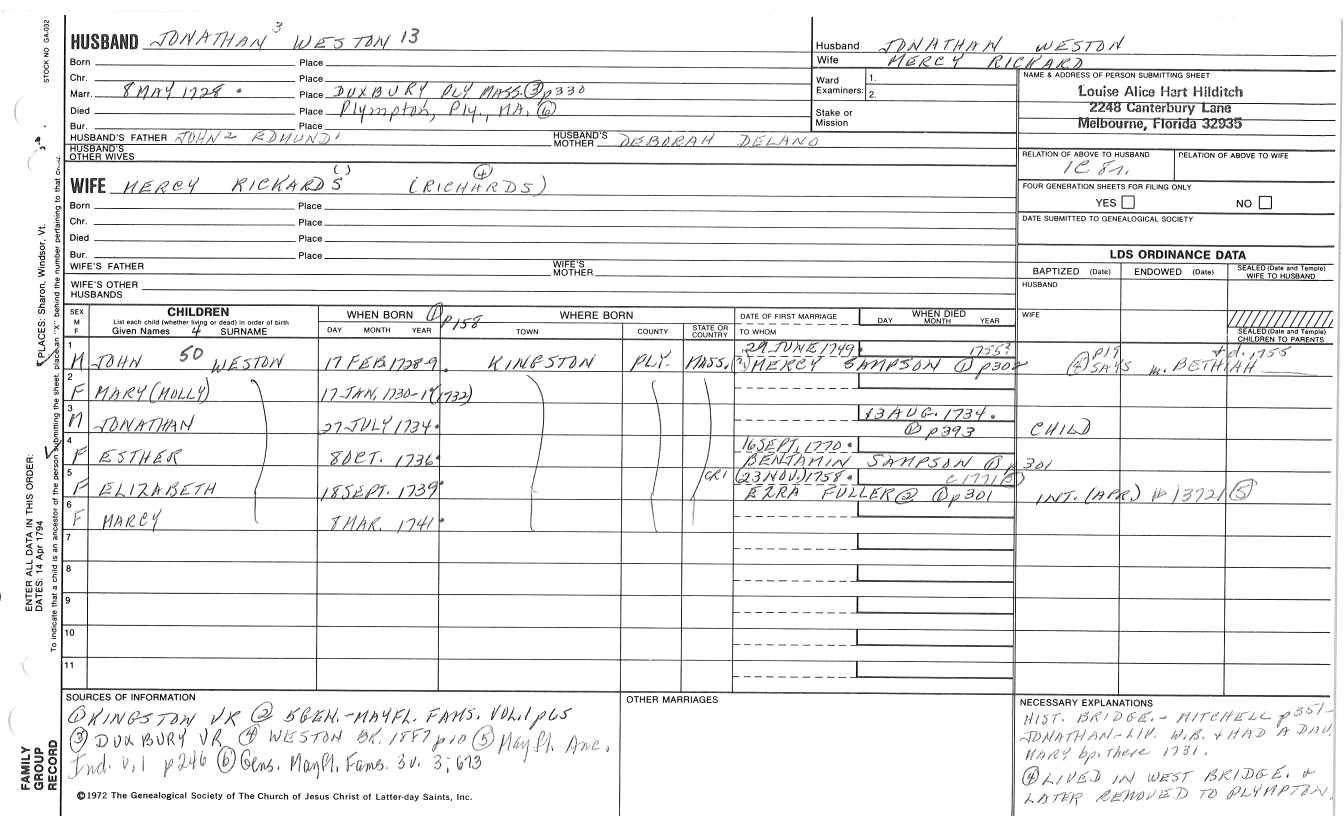 STOCK NO GA-032
HUSBAND JONATHAN 3 WESTON 13
Born Place
Chr. Place
Marr. 8 MAY 1728. Place DUXBURY PLY MASS. ③ p330
Died Place Plympton, Ply., MA. ⑥
Bur. Place
HUSBAND'S FATHER JOHN 2 EDMUND 1 HUSBAND'S MOTHER DEBORAH DELANO
HUSBAND'S OTHER WIVES
Husband JONATHAN WESTON
Wife MERCY RICKARD
Ward Examiners: 1.
2.
Stake or Mission
NAME & ADDRESS OF PERSON SUBMITTING SHEET
Louise Alice Hart Hilditch
2248 Canterbury Lane
Melbourne, Florida 32935
RELATION OF ABOVE TO HUSBAND RELATION OF ABOVE TO WIFE
1C 8r.
FOUR GENERATION SHEETS FOR FILING ONLY
YES NO
DATE SUBMITTED TO GENEALOGICAL SOCIETY
WIFE MERCY RICKARD(S) (RICHARDS) ④
Born Place
Chr. Place
Died Place
Bur. Place
WIFE'S FATHER WIFE'S MOTHER
WIFE'S OTHER HUSBANDS
LDS ORDINANCE DATA
BAPTIZED (Date) ENDOWED (Date) SEALED (Date and Temple) WIFE TO HUSBAND
HUSBAND
WIFE
SEALED (Date and Temple) CHILDREN TO PARENTS
SEX M F CHILDREN List each child (whether living or dead) in order of birth Given Names 4 SURNAME
WHEN BORN ① p158 DAY MONTH YEAR
WHERE BORN TOWN COUNTY STATE OR COUNTRY
DATE OF FIRST MARRIAGE TO WHOM
WHEN DIED DAY MONTH YEAR
1 M JOHN 50 WESTON 17 FEB. 1728-9. KINGSTON PLY. MASS. 29 JUNE 1749. 1755? MERCY SAMPSON ① p302 ④ p17 SAYS m. BETHIAH + d. 1755
2 F MARY (MOLLY) 17 JAN. 1730-1 (1732)
3 M JONATHAN 27 JULY 1734. 13 AUG. 1734. ① p393 CHILD
4 F ESTHER 8 OCT. 1736. 16 SEPT. 1770. BENJAMIN SAMPSON ① p 301
5 F ELIZABETH 18 SEPT. 1739. CR1 (23 NOV.) 1758. C1771 ⑤ EZRA FULLER ② ① p301 INT. (APR.) # 13721 ⑤
6 F MARCY 8 MAR. 1741.
7
8
9
10
11
SOURCES OF INFORMATION
① KINGSTON VR ② 5 GEN.-MAYFL. FAMS. VOL. 1 p65
③ DUXBURY VR ④ WESTON BK. 1887 p10 ⑤ Mayfl. Anc.
Ind. v.1 p246 ⑥ Gens. Mayfl. Fams. 3v. 3;673
©1972 The Genealogical Society of The Church of Jesus Christ of Latter-day Saints, Inc.
OTHER MARRIAGES
NECESSARY EXPLANATIONS
HIST. BRIDGE. - MITCHELL p351-
JONATHAN-LIV. W.B. + HAD A DAU.
MARY bp. there 1731.
④ LIVED IN WEST BRIDGE. &
LATER REMOVED TO PLYMPTON.
ENTER ALL DATA IN THIS ORDER:
DATES: 14 Apr 1794 PLACES: Sharon, Windsor, Vt.
To indicate that a child is an ancestor of the person submitting the sheet, place an "X" behind the number pertaining to that
FAMILY GROUP RECORD